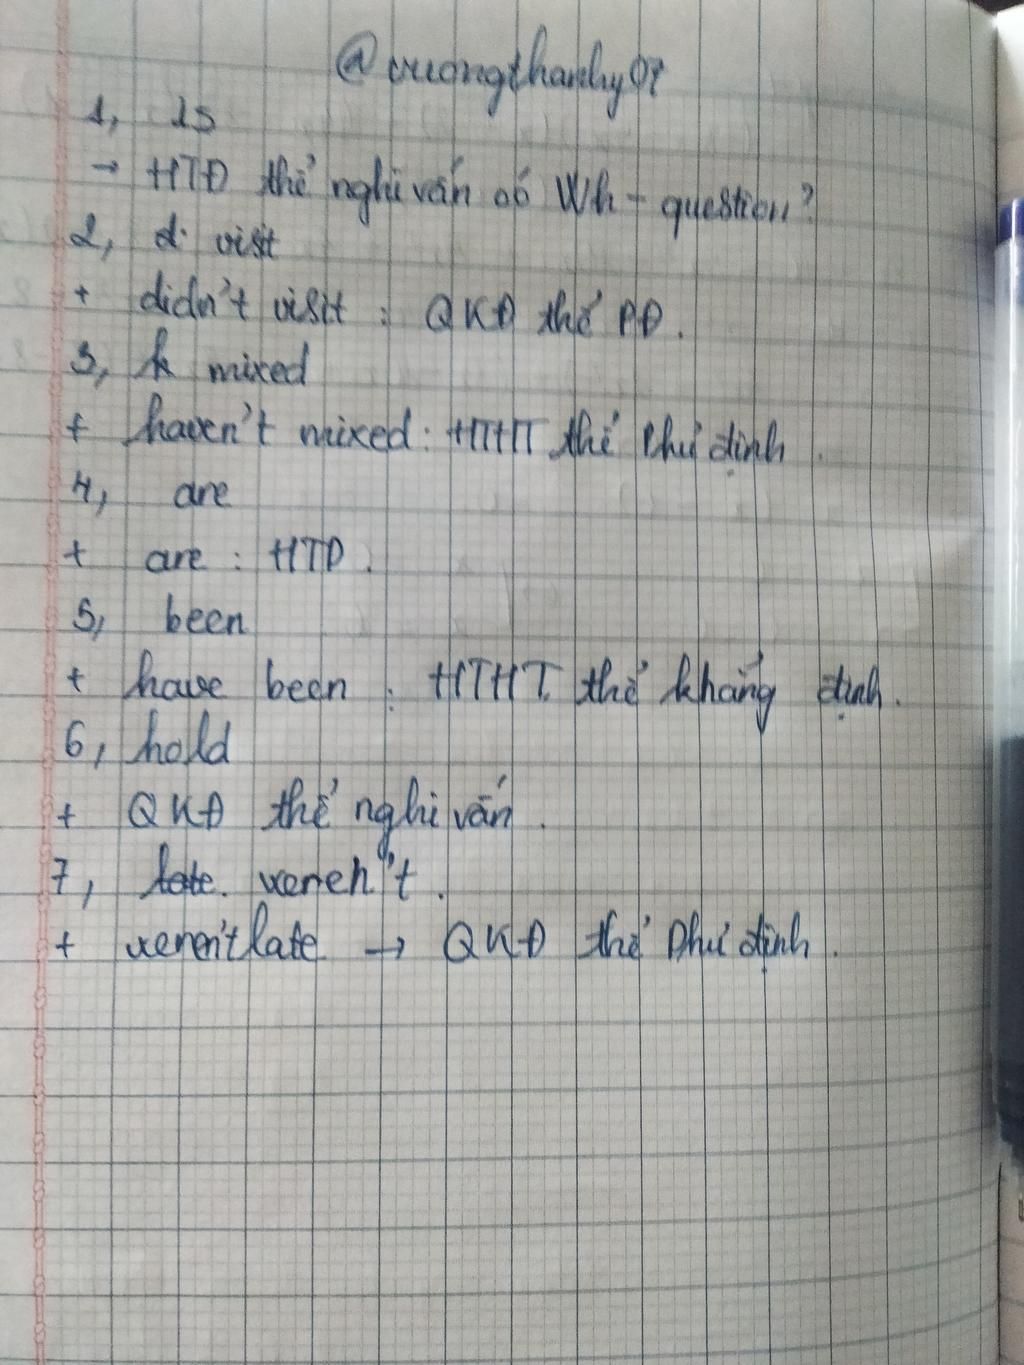 @vuongthanhy07
1, is
→ HTĐ thể nghi vấn có Wh-question?
2, d. visit
+ didn't visit : QKĐ thể PĐ.
3, h mixed
+ haven't mixed: HTHT thể Phủ định.
4, are
+ are : HTĐ.
5, been
+ have been : HTHT thể khẳng định.
6, hold
+ QKĐ thể nghi vấn.
7, late. weren't.
+ weren't late → QKĐ thể Phủ định.